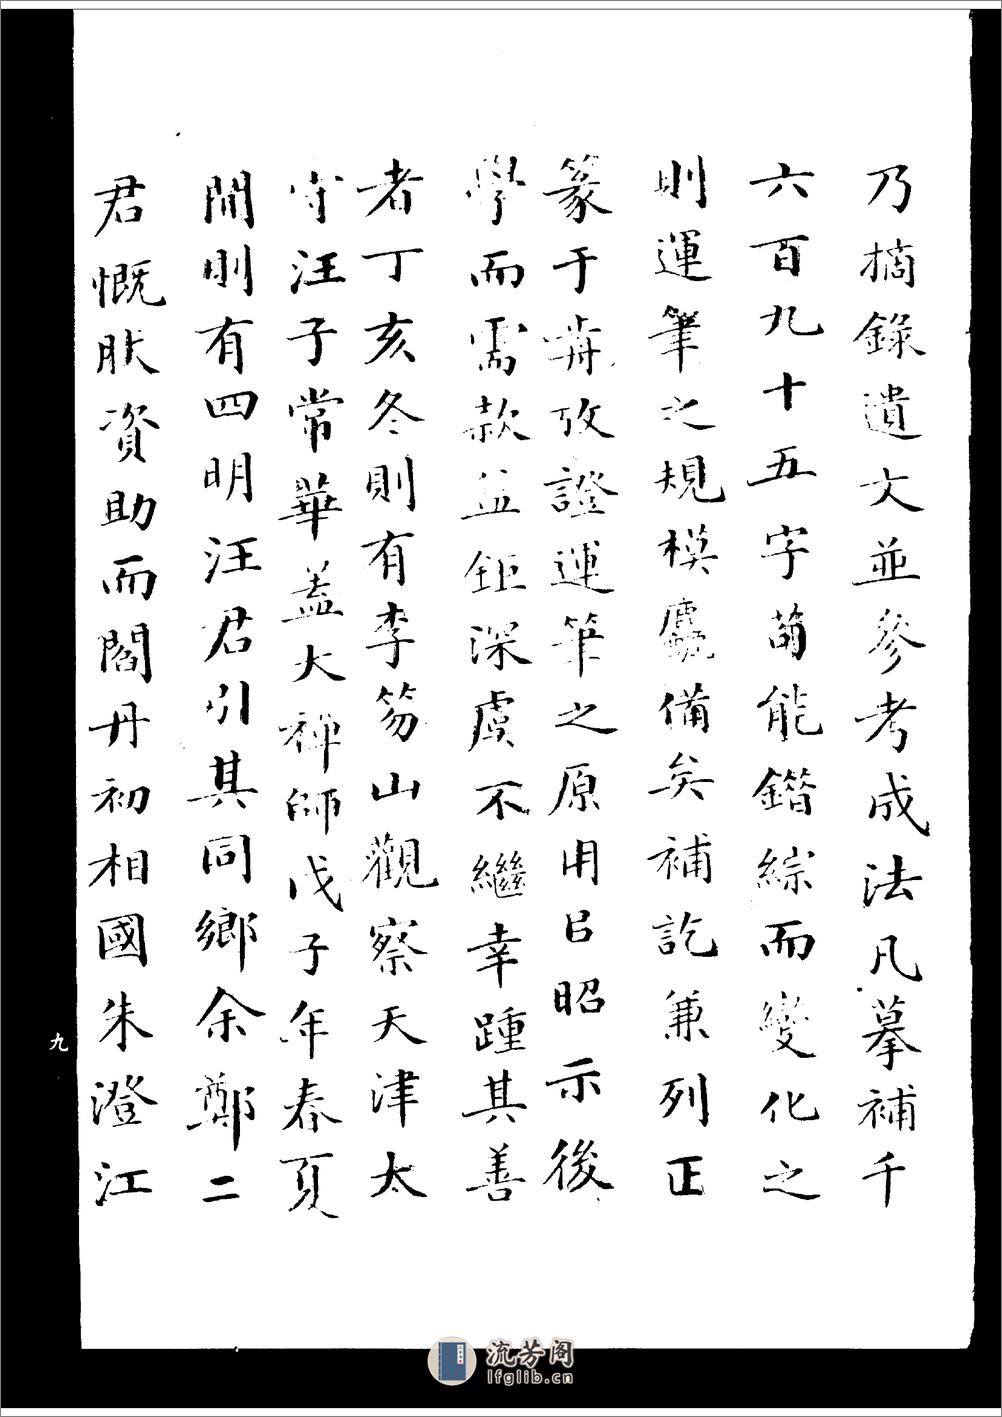 乃摘錄遺文並參考成法凡摹補千
六百九十五字苟能錯綜而變化之
則運筆之規模麤備矣補訖兼列正
篆于弁攷證運筆之原用㠯昭示後
學而需款益鉅深虞不繼幸踵其善
者丁亥冬則有李笏山觀察天津太
守汪子常華蓋大禅師戊子年春夏
間則有四明汪君引其同鄉余鄭二
君慨肰資助而閻丹初相國朱澄江
九
流芳阁
lfglib.cn